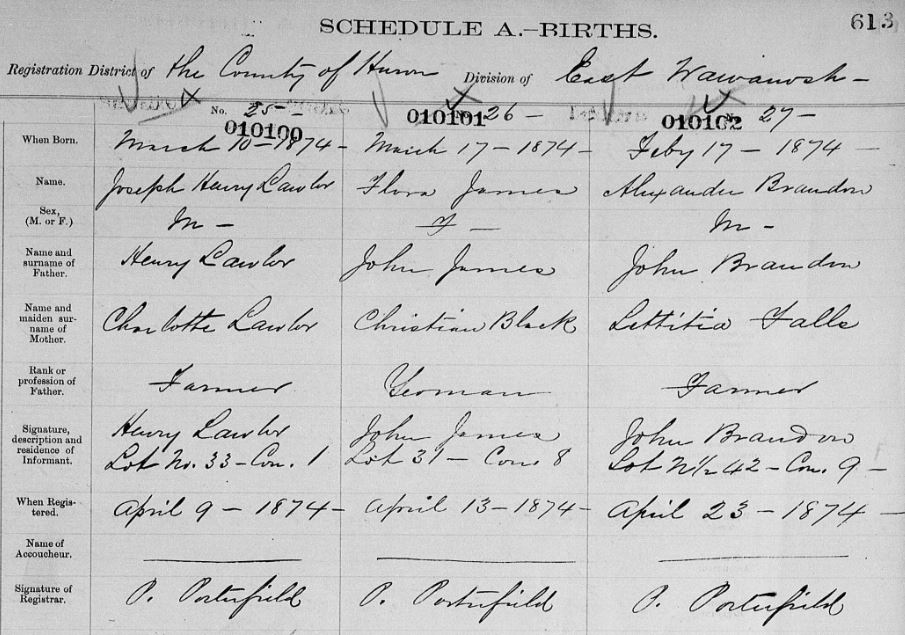 613
SCHEDULE A.—BIRTHS.
Registration District of the County of Huron Division of East Wawanosh —
No. 25 — 26 — No. 27 —
010100 010101 010102
When Born. March 10 — 1874 — March 17 — 1874 — Feby 17 — 1874 —
Name. Joseph Henry Lawlor Flora James Alexander Brandon
Sex, (M. or F.) M — F — M —
Name and surname of Father. Henry Lawlor John James John Brandon
Name and maiden sur-name of Mother. Charlotte Lawlor Christian Black Lettitia Falls
Rank or profession of Father. Farmer Yeoman Farmer
Signature, description and residence of Informant. Henry Lawlor John James John Brandon
Lot No. 33 — Con. 1 Lot 31 — Con 8 Lot N½ 42 — Con. 9 —
When Regis-tered. April 9 — 1874 — April 13 — 1874 — April 23 — 1874 —
Name of Accoucheur.
Signature of Registrar. P. Porterfield P. Porterfield P. Porterfield